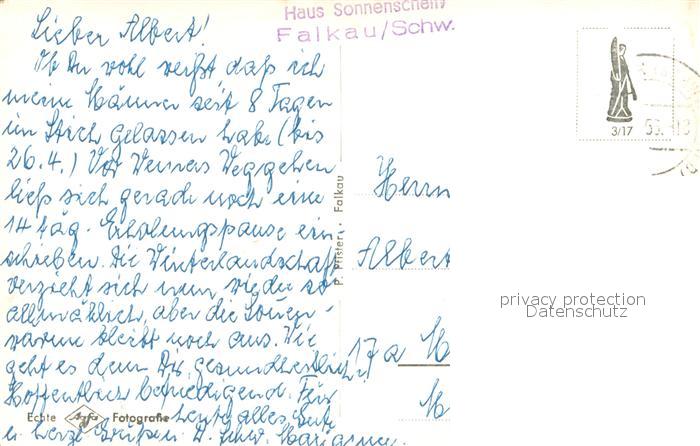 Haus Sonnenschein
Falkau/Schw.
Lieber Albert!
Ob Du wohl weißt daß ich
meine Männer seit 8 Tagen
im Stich gelassen habe (bis
26.4.) Vor Werners Weggehen
ließ sich gerade noch eine
14 täg. Erholungspause ein-
schieben. Die Winterlandschaft
verzieht sich nun wieder so
allmählich, aber die Sonnen-
wärme bleibt noch aus. Wie
geht es denn Dir, gesundheitlich?
Hoffentlich befriedigend. Für
heute alles Gute
u. herzl. Grüßen
Herrn
Albert
17a M
M
P. Pfister · Falkau
Echte Agfa Fotografie
3/17
privacy protection
Datenschutz